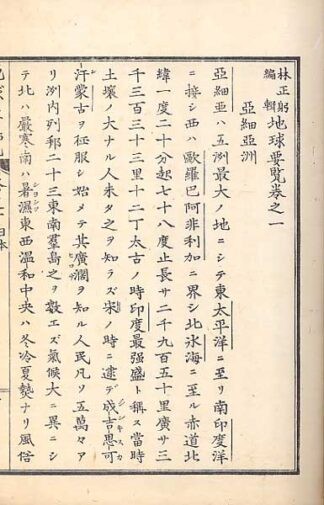 林正躬編輯 地球要覽卷之一
亞細亞洲
亞細亞ハ五洌最大ノ地ニシテ東太平洋ニ至リ南印度洋
ニ接シ西ハ歐羅巴阿非利加ニ界シ北氷海ニ至ル赤道北
緯一度二十分起七十八度止長サ二千九百五十里廣サ三
千三百三十三里十二丁太古ノ時印度最强盛ト稱ス當時
土壤ノ大ナル人未タ之ヲ知ラズ宋ノ時ニ逮デ成吉思可
汗蒙古ヲ征服シ始メテ其廣濶ヲ知ル人民凡ソ五萬々ア
リ洌内列邦二十三東南羣島之ヲ數エズ氣候大ニ異ニシ
テ北ハ嚴寒南ハ暑濕東西温和中央ハ冬冷夏熱ナリ風俗